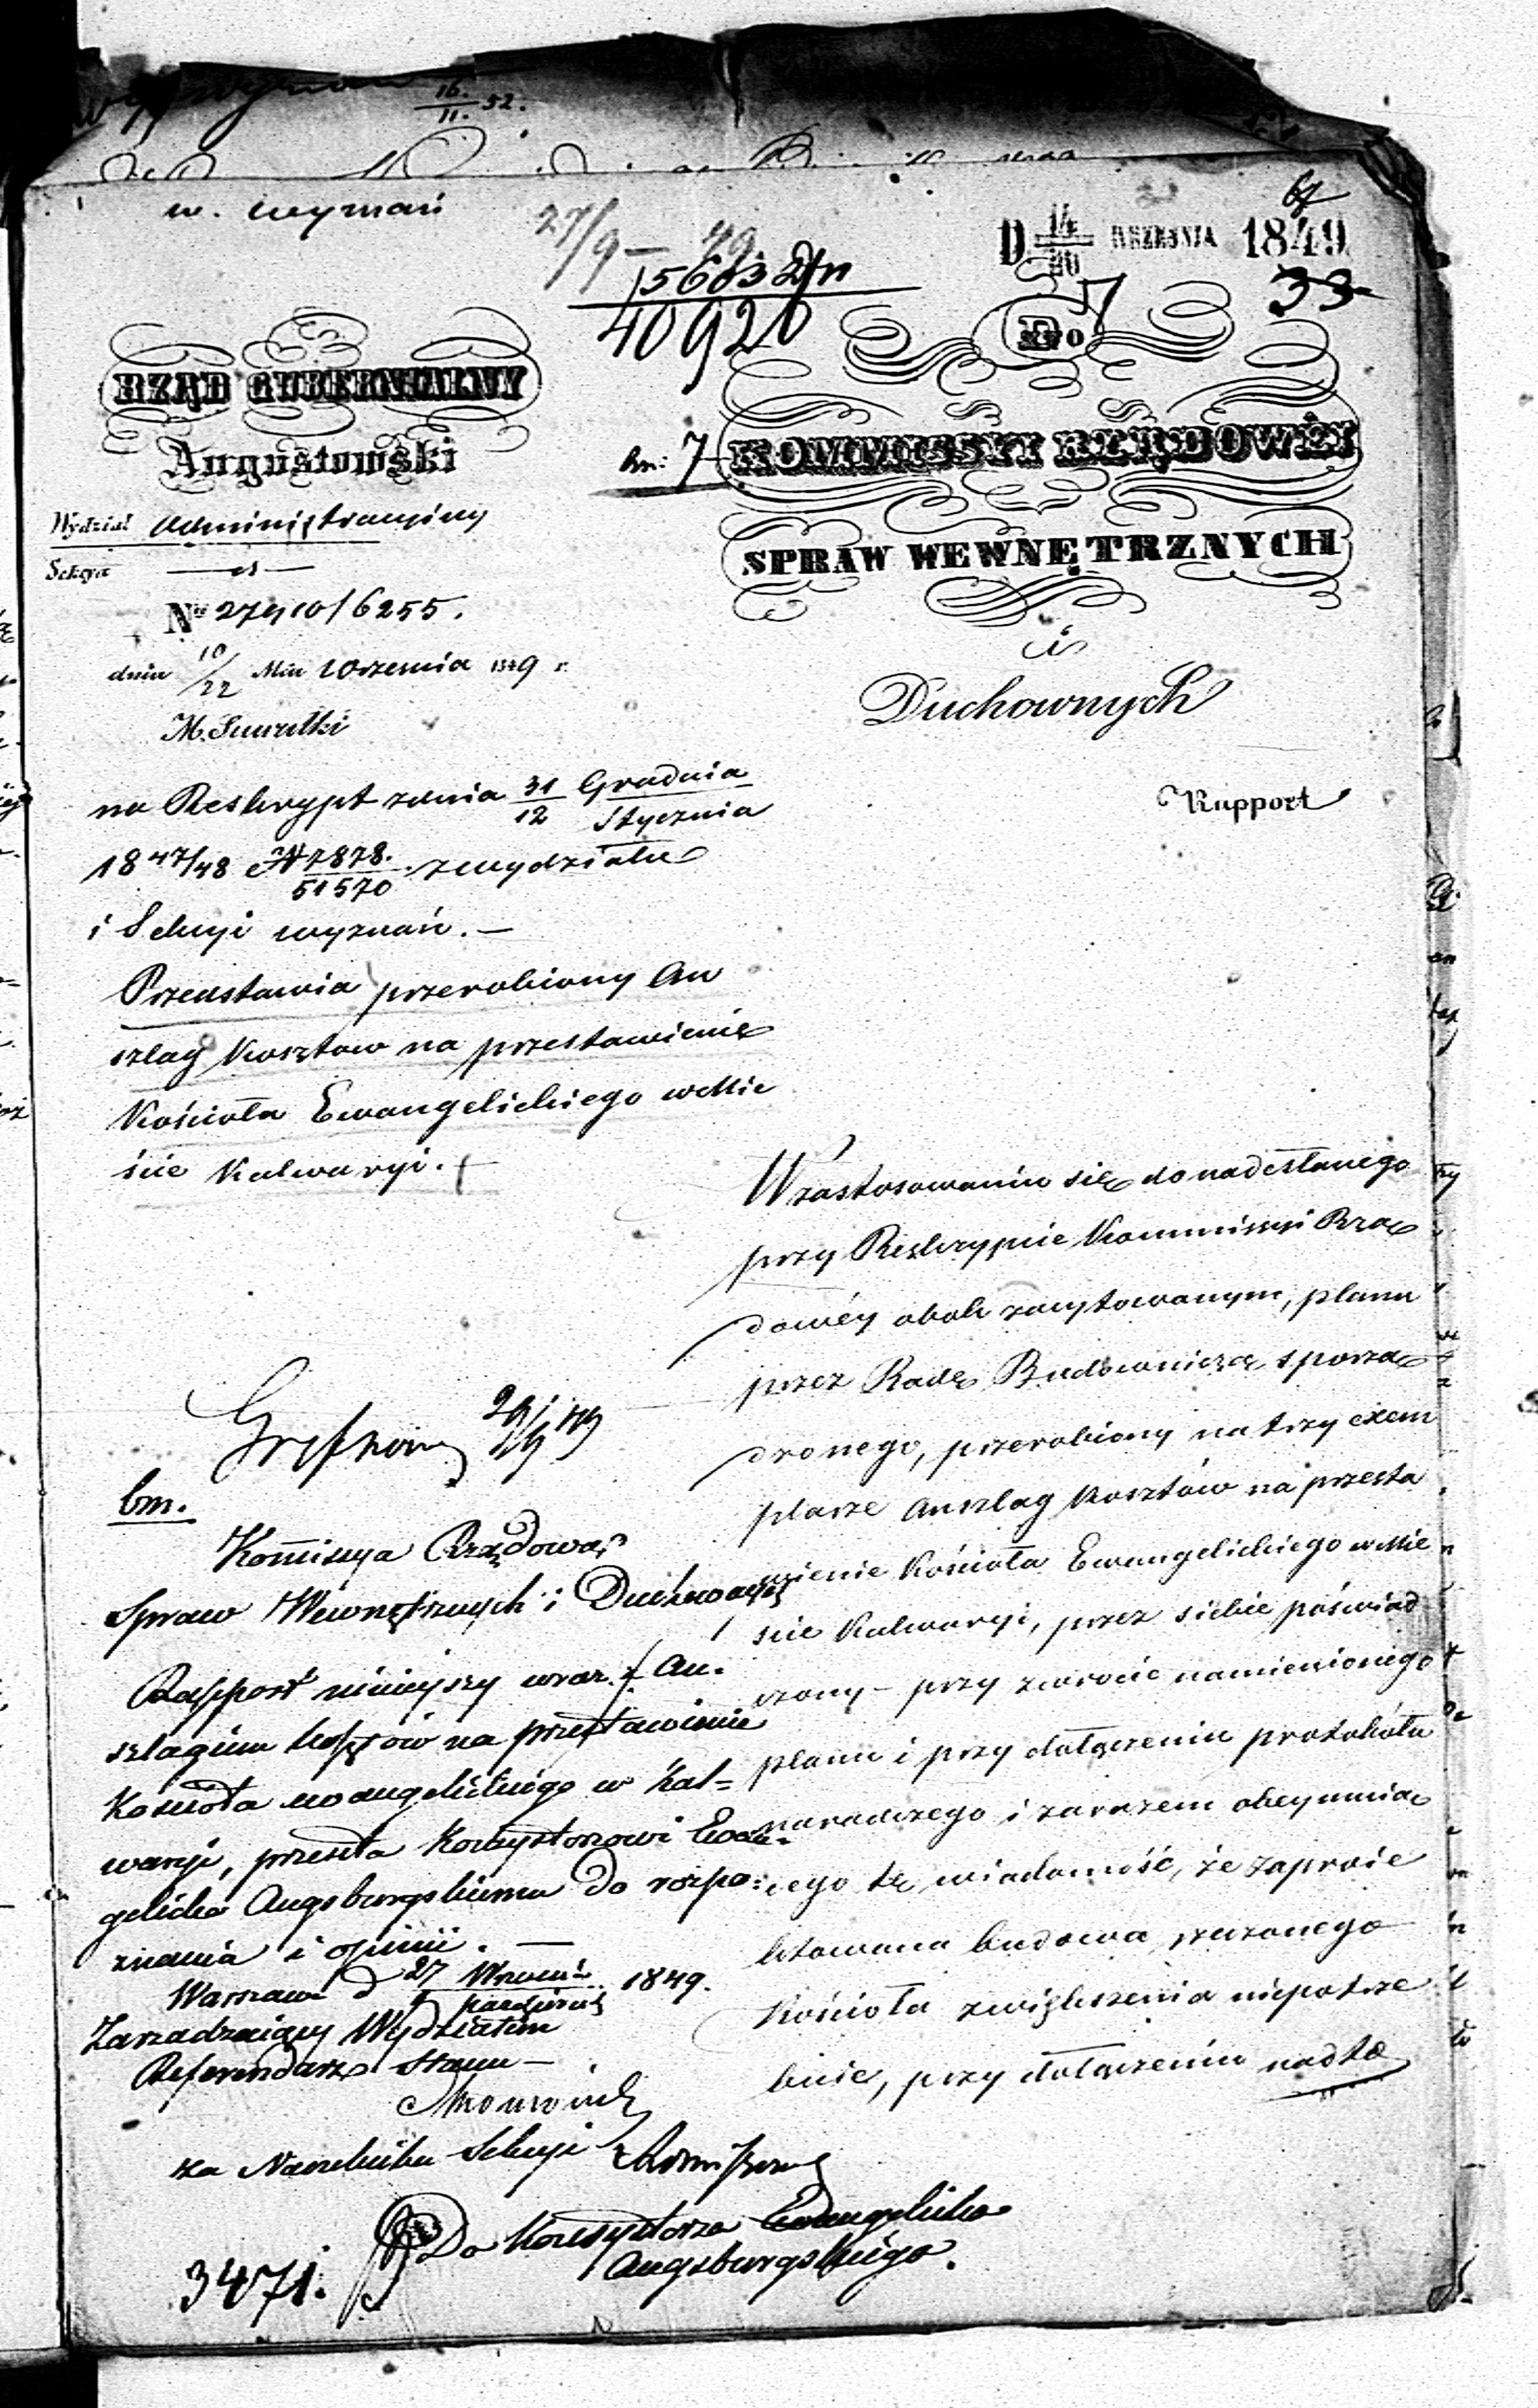 16/11. 52.
w. wyznań
27/9 – 49
15683 Dn
40920
D 14/26 WRZEŚNIA 1849
67
33
RZĄD GUBERNIALNY
Augustowski
Wydział Administracyiny
Sekcya
Nr 27910/6255.
dnia 10/22 Mca Września 1849 r.
M. Suwałki
Do
bm: 7
KOMMISSYI RZĄDOWÉY
SPRAW WEWNĘTRZNYCH
i
Duchownych
Rapport
na Reskrypt z dnia 31/12 Grudnia/Stycznia
1847/48 N 7878./51570 z wydziału
i Sekcyi wyznań. –
Przedstawia przerobiony An
szlag kosztow na przestawienie
Kościoła Ewangelickiego w Mie
ście Kalwaryi.
W zastosowaniu się do nadesłanego
przy Reskrypcie Kommissyi Rzą
dowéy obok zacytowanym, planu
przez Radę Budowniczą sporzą
dzonego, przerobiony na trzy exem
plarze Anszlag kosztów na przesta
wienie Kościoła Ewangelickiego w Mie
ście Kalwaryi, przez siebie poświad
czony – przy zwrocie namienionego
planu i przy dołączeniu protokółu
naradczego i zarazem obeymuią
cego tę wiadomość, że zaproie
ktowana budowa rzeczonego
Kościoła zwiększenia niepotrze
buie, przy dołączeniu nadto
29/9 49
bm.
Kommissya Rządowa
Spraw Wewnętrznych i Duchownych
Rapport niniejszy wraz z An-
szlagiem kosztów na przestawienie
Kościoła ewangelickiego w Kal=
waryi, przesyła Konsystorzowi Ewan-
gelicko Augsburgskiemu do rozpo-
znania i opinii. –
Warszawa d 27 Września/Października 1849.
Zarządzaiący Wydziałem
Referendarz Stanu –
za Naczelnika Sekcyi
Do Konsystorza Ewangelicko
Augsburgskiego.
3471.